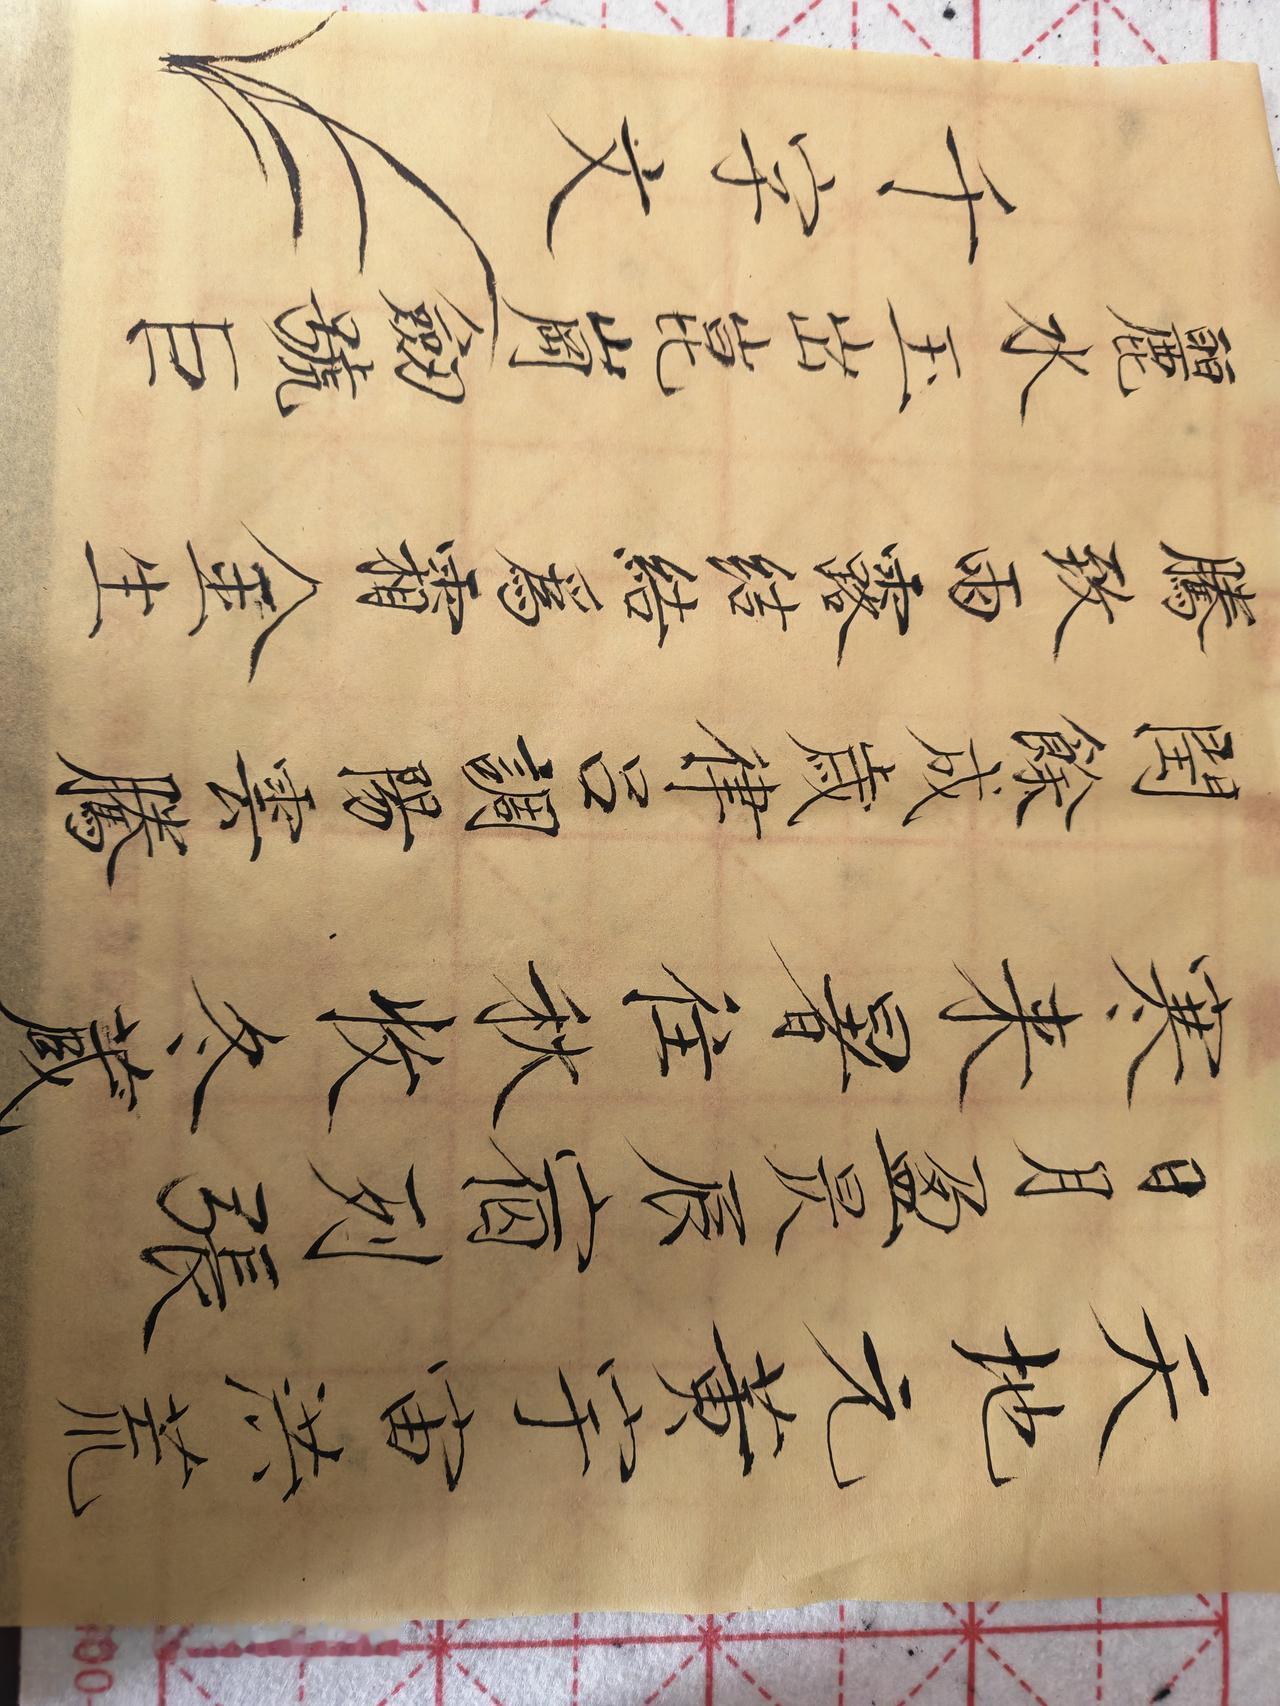 天地元黄宇宙洪荒
日月盈昃辰宿列張
寒来暑往秋收冬藏
閏餘成歲律吕調陽雲騰
騰致雨露結結為霜金生
麗水玉出崑岡劍號巨
千字文